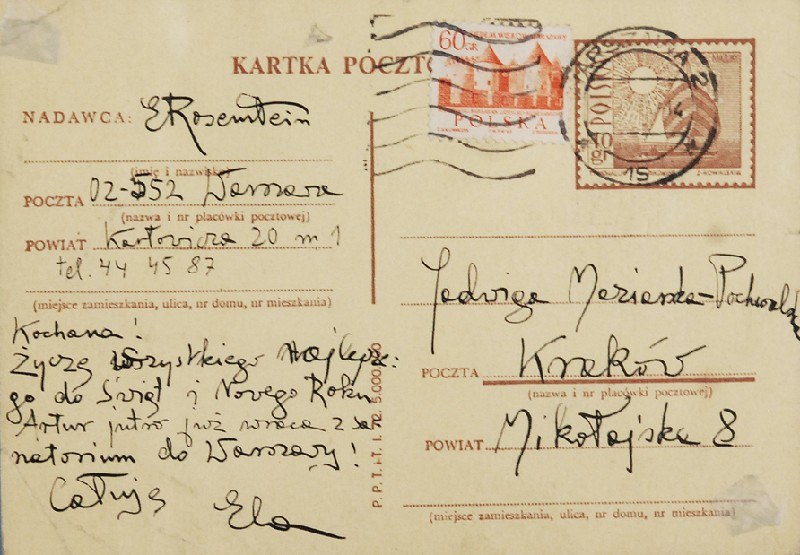 KARTKA POCZTO
60 GR
POLSKA
POLSKA
40 gr
WARSZAWA 2
15
NADAWCA: E Rosenstein
(imię i nazwisko)
POCZTA 02-552 Warszawa
(nazwa i nr placówki pocztowej)
POWIAT Karłowicza 20 m 1
tel. 44 45 87
(miejsce zamieszkania, ulica, nr domu, nr mieszkania)
Kochana!
Życzę wszystkiego najlepsze-
go do Świąt i Nowego Roku
Artur jutro już wraca z sa
natorium do Warszawy!
Całuję
Ela
P.P.T. i T.
Jadwiga Maziarska-
POCZTA Kraków
(nazwa i nr placówki pocztowej)
POWIAT Mikołajska 8
(miejsce zamieszkania, ulica, nr domu, nr mieszkania)